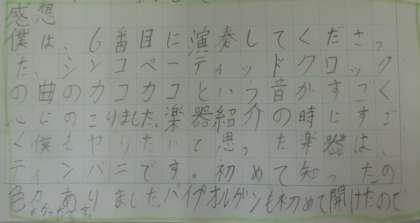 感想
僕は、6番目に演奏してくださっ
た、シンコペーティッドクロック
の曲のカコカコという音がすごく
心にのこりました。楽器紹介の時にすご
く僕もやりたいと思った楽器は、
ティンパニです。初めて知ったの
色々ありました。パイプオルガンも初めて聞けたので
よかったです。